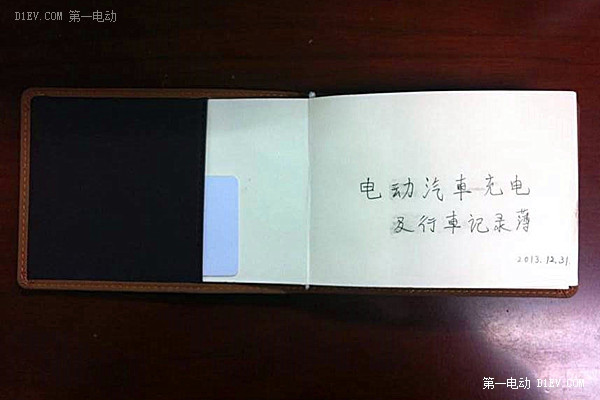 D1EV.COM 第一电动
电动汽車充电
及行車记录薄
2013.12.31.
第一电动 D1EV.COM